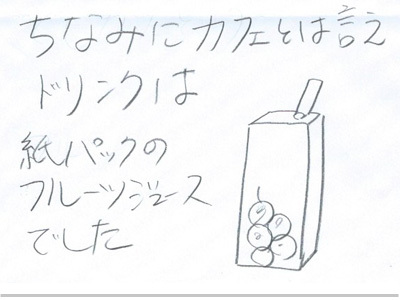 ちなみにカフェとは言え
ドリンクは
紙パックの
フルーツジュース
でした